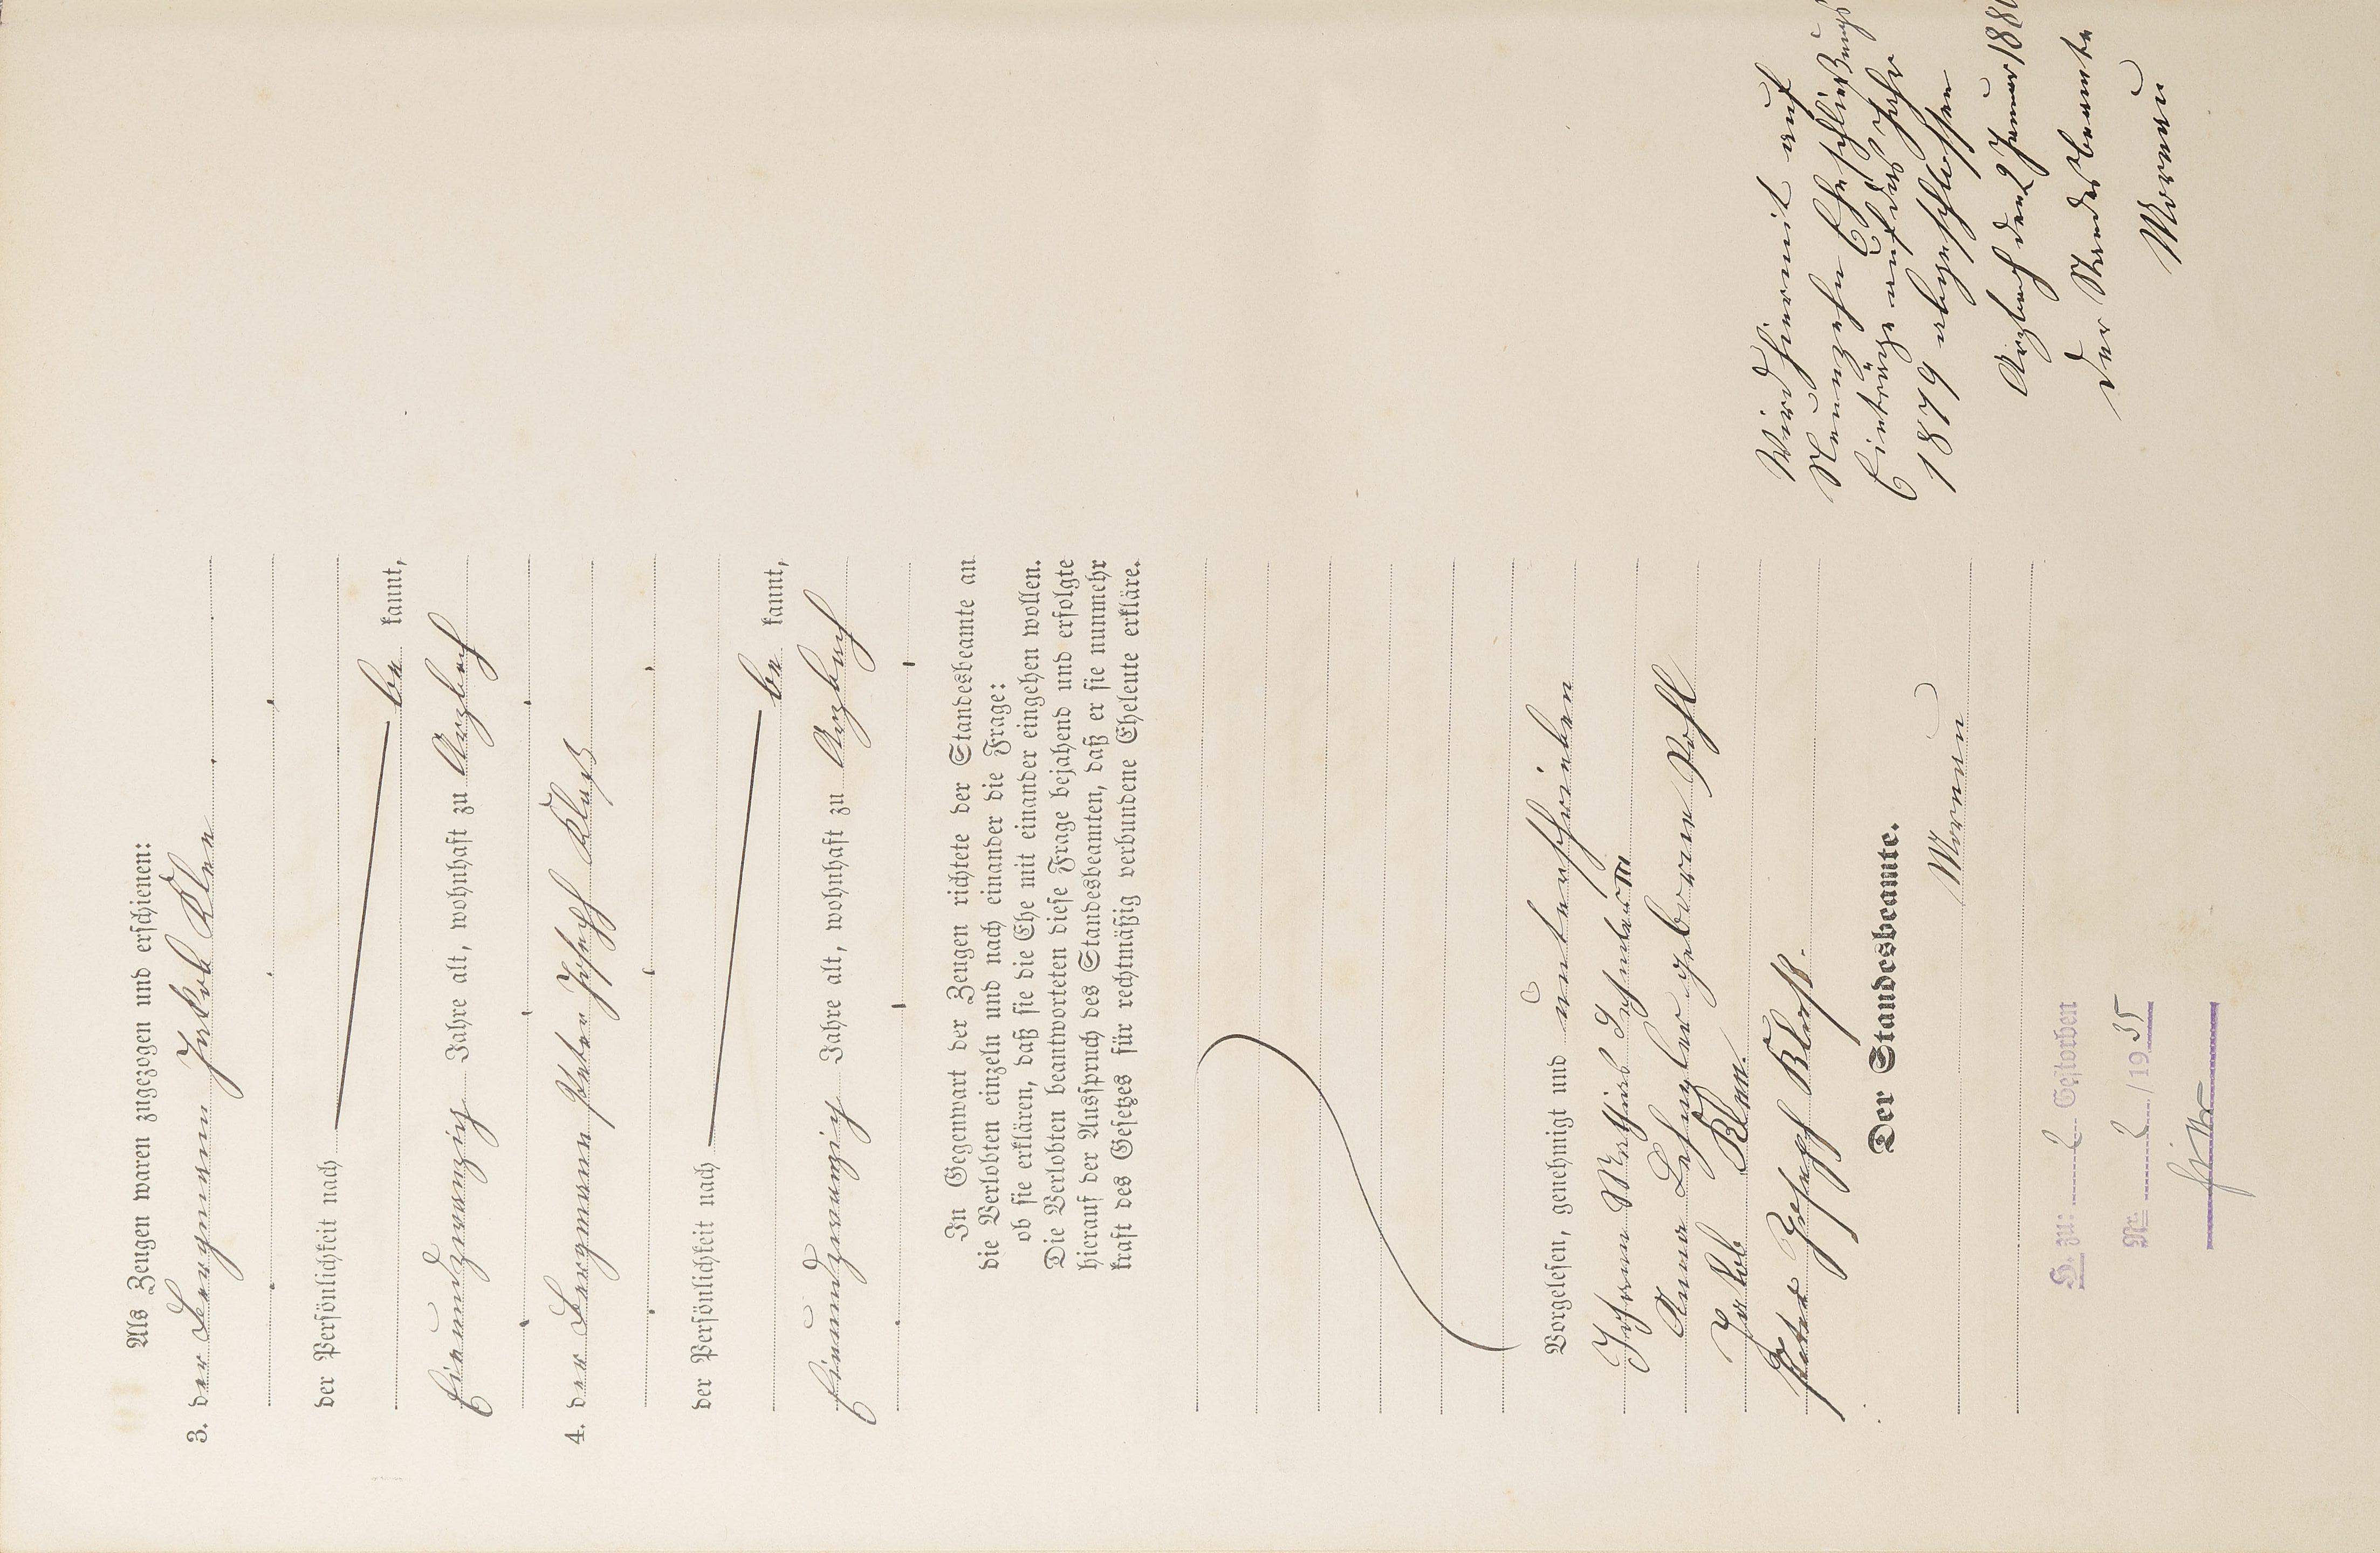 Als Zeugen waren zugezogen und erschienen:
3. der Bergmann Jakob Klee
der Persönlichkeit nach
be kannt,
Einundzwanzig Jahre alt, wohnhaft zu Arzbach
4. der Bergmann Peter Joseph Kloß
der Persönlichkeit nach
be kannt,
Einundzwanzig Jahre alt, wohnhaft zu Arzbach
In Gegenwart der Zeugen richtete der Standesbeamte an
die Verlobten einzeln und nach einander die Frage:
ob sie erklären, daß sie die Ehe mit einander eingehen wollen.
Die Verlobten beantworteten diese Frage bejahend und erfolgte
hierauf der Ausspruch des Standesbeamten, daß er sie nunmehr
kraft des Gesetzes für rechtmäßig verbundene Eheleute erkläre.
Vorgelesen, genehmigt und unterschrieben
Johann Mathias
Anna geborene Pohl
Jakob Klee.
Peter Joseph Kloß.
Der Standesbeamte.
Moreau
H. zu: 2 Gestorben
Nr. 2 /1935
Wird hiermit auf
Neunzehn Eheschließungs
Einträge auf das Jahr
1879 abgeschlossen
Arzbach den 2 Januar 1880
Der Standesbeamte
Moreau